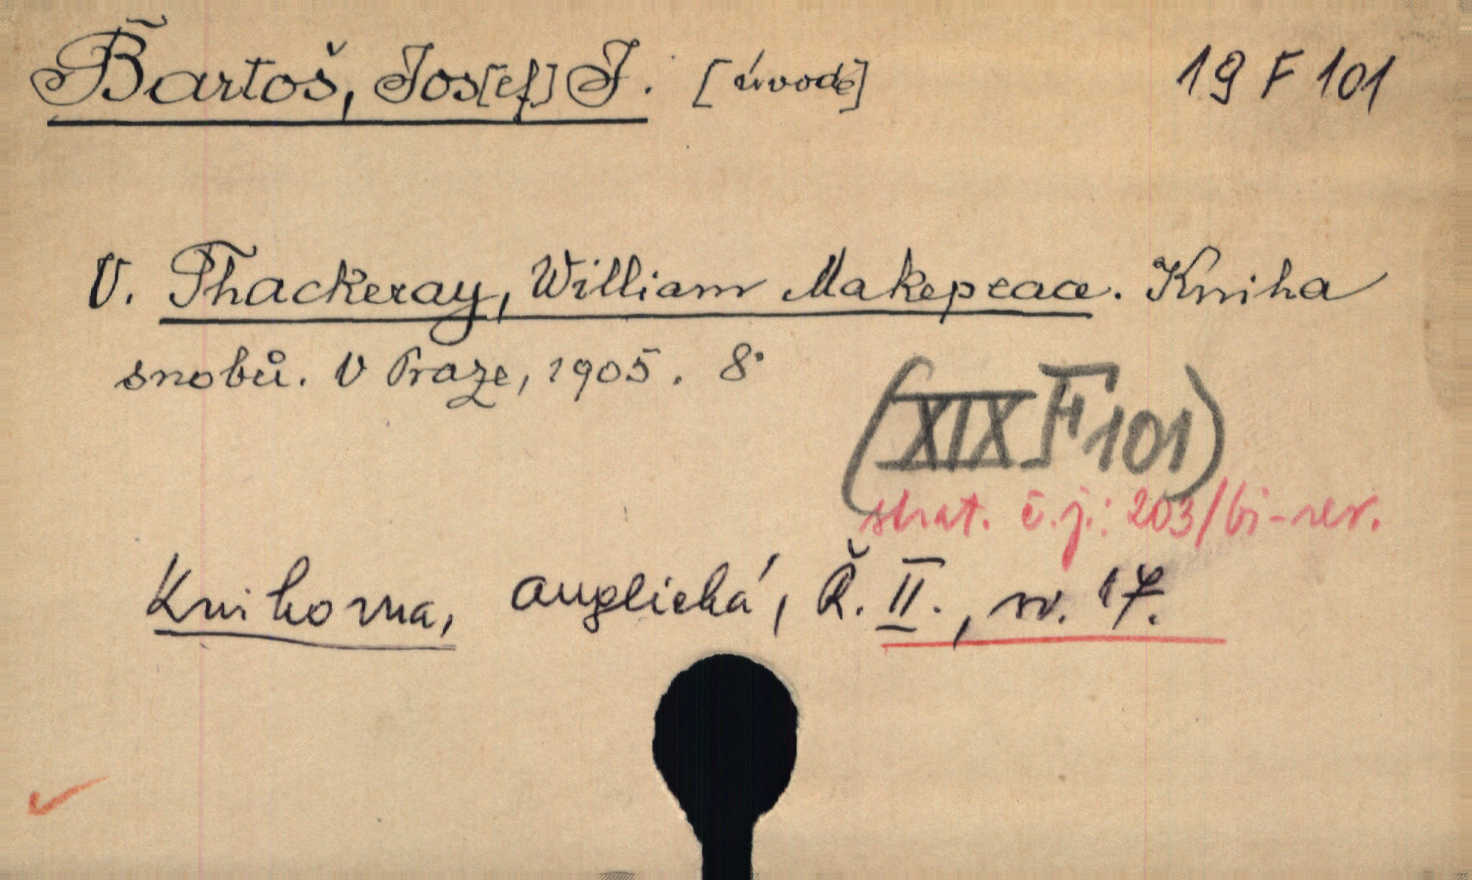 Bartoš, Jos[ef] J. [úvod] 19 F 101
V. Thackeray, William Makepeace. Kniha
snobů. V Praze, 1905. 8°
(XIX F 101)
strat. č.j.: 203/bi-rev.
Knihovna, anglická, Ř. II., sv. 17.